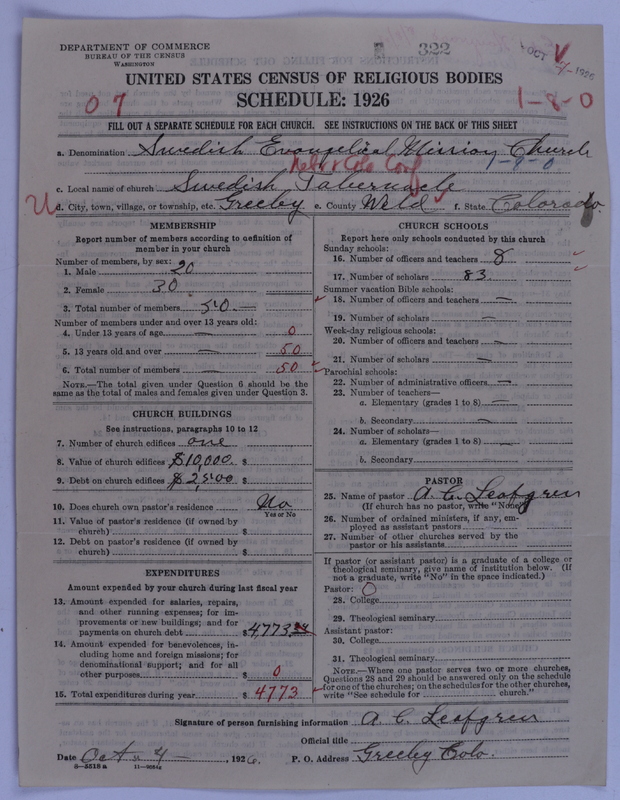 DEPARTMENT OF COMMERCE
BUREAU OF THE CENSUS
WASHINGTON
322
OCT 1926
UNITED STATES CENSUS OF RELIGIOUS BODIES
SCHEDULE: 1926
07
1-8-0
FILL OUT A SEPARATE SCHEDULE FOR EACH CHURCH. SEE INSTRUCTIONS ON THE BACK OF THIS SHEET
a. Denomination Swedish Evangelical Mission Church
Colo Conf 1-8-0
c. Local name of church Swedish Tabernacle
d. City, town, village, or township, etc. Greeley e. County Weld f. State Colorado.
MEMBERSHIP
Report number of members according to definition of
member in your church
Number of members, by sex:
1. Male 20
2. Female 30
3. Total number of members 50
Number of members under and over 13 years old:
4. Under 13 years of age — 0
5. 13 years old and over — 50
6. Total number of members — 50
NOTE.—The total given under Question 6 should be the
same as the total of males and females given under Question 3.
CHURCH BUILDINGS
See instructions, paragraphs 10 to 12
7. Number of church edifices one
8. Value of church edifices $10,000. $
9. Debt on church edifices $2,500 $
10. Does church own pastor's residence No
Yes or No
11. Value of pastor's residence (if owned by
church) $
12. Debt on pastor's residence (if owned by
church) $
EXPENDITURES
Amount expended by your church during last fiscal year
13. Amount expended for salaries, repairs,
and other running expenses; for im-
provements or new buildings; and for
payments on church debt $4773
14. Amount expended for benevolences, in-
cluding home and foreign missions; for
denominational support; and for all
other purposes $ 0
15. Total expenditures during year $ 4773
CHURCH SCHOOLS
Report here only schools conducted by this church
Sunday schools:
16. Number of officers and teachers 8
17. Number of scholars 83
Summer vacation Bible schools:
18. Number of officers and teachers —
19. Number of scholars —
Week-day religious schools:
20. Number of officers and teachers —
21. Number of scholars —
Parochial schools:
22. Number of administrative officers —
23. Number of teachers—
a. Elementary (grades 1 to 8) —
b. Secondary —
24. Number of scholars—
a. Elementary (grades 1 to 8) —
b. Secondary
PASTOR
25. Name of pastor A. C. Leafgren
(If church has no pastor, write "None")
26. Number of ordained ministers, if any, em-
ployed as assistant pastors
27. Number of other churches served by the
pastor or his assistants
If pastor (or assistant pastor) is a graduate of a college or
theological seminary, give name of institution below. (If
not a graduate, write "No" in the space indicated.)
Pastor: 0
28. College
29. Theological seminary
Assistant pastor:
30. College
31. Theological seminary
NOTE.—Where one pastor serves two or more churches,
Questions 28 and 29 should be answered only on the schedule
for one of the churches; on the schedules for the other churches,
write "See schedule for church."
Signature of person furnishing information A. C. Leafgren
Official title
Date Oct 4 —, 1926. P. O. Address Greeley Colo.
8-5518a 11-9084